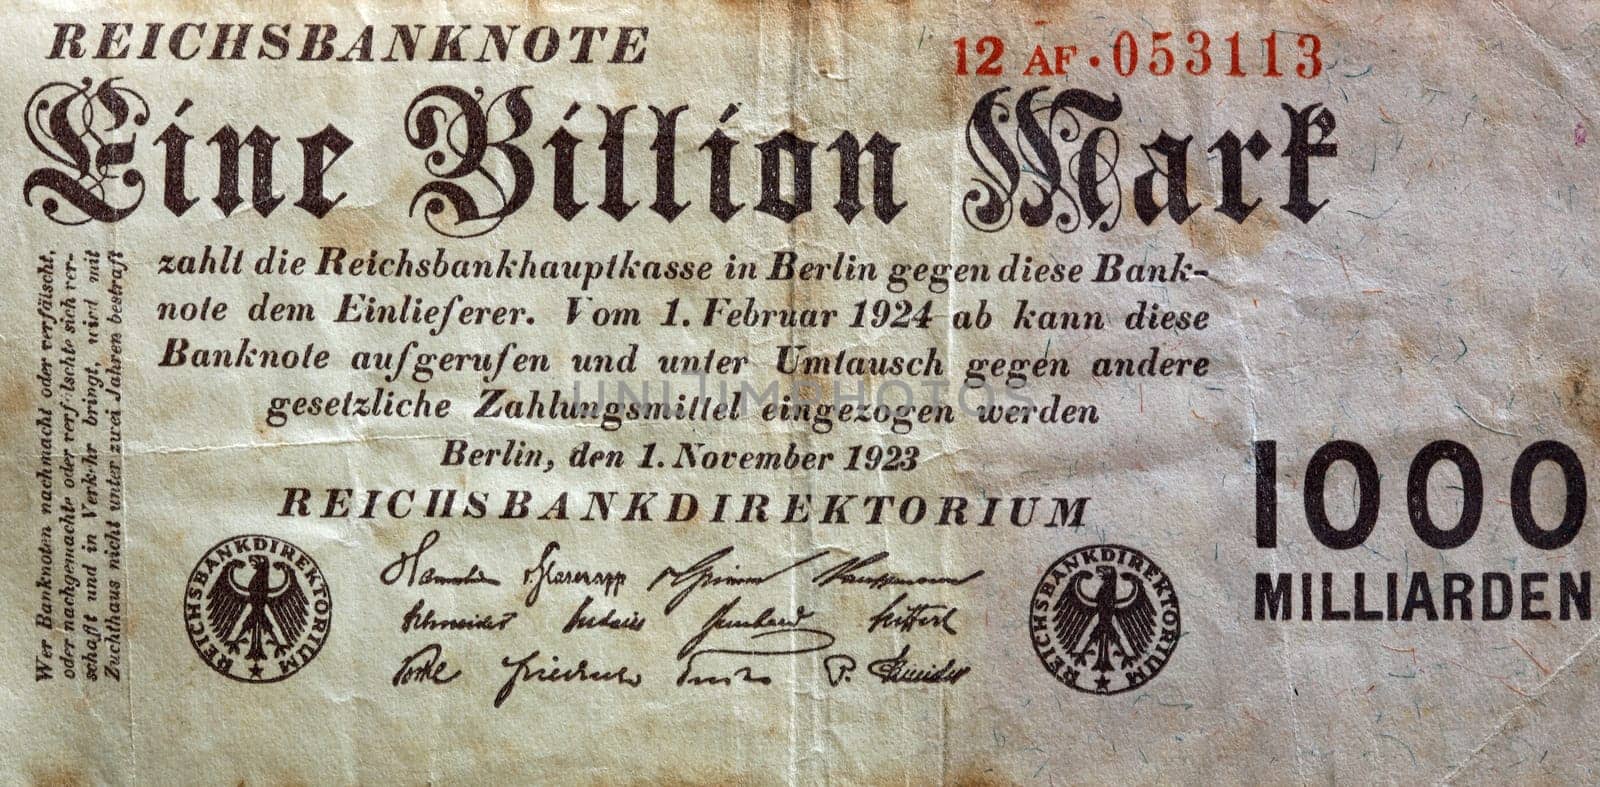 REICHSBANKNOTE
12 AF·053113
Eine Billion Mark
zahlt die Reichsbankhauptkasse in Berlin gegen diese Bank-
note dem Einlieferer. Vom 1. Februar 1924 ab kann diese
Banknote aufgerufen und unter Umtausch gegen andere
gesetzliche Zahlungsmittel eingezogen werden
Berlin, den 1. November 1923
REICHSBANKDIREKTORIUM
Wer Banknoten nachmacht oder verfälscht,
oder nachgemachte oder verfälschte sich ver-
schafft und in Verkehr bringt, wird mit
Zuchthaus nicht unter zwei Jahren bestraft
1000
MILLIARDEN
REICHSBANKDIREKTORIUM
REICHSBANKDIREKTORIUM
v. Glasenapp v. Grimm Kauffmann
Schneider Budczies
P. Schneider
UNIJIMPHOTOS